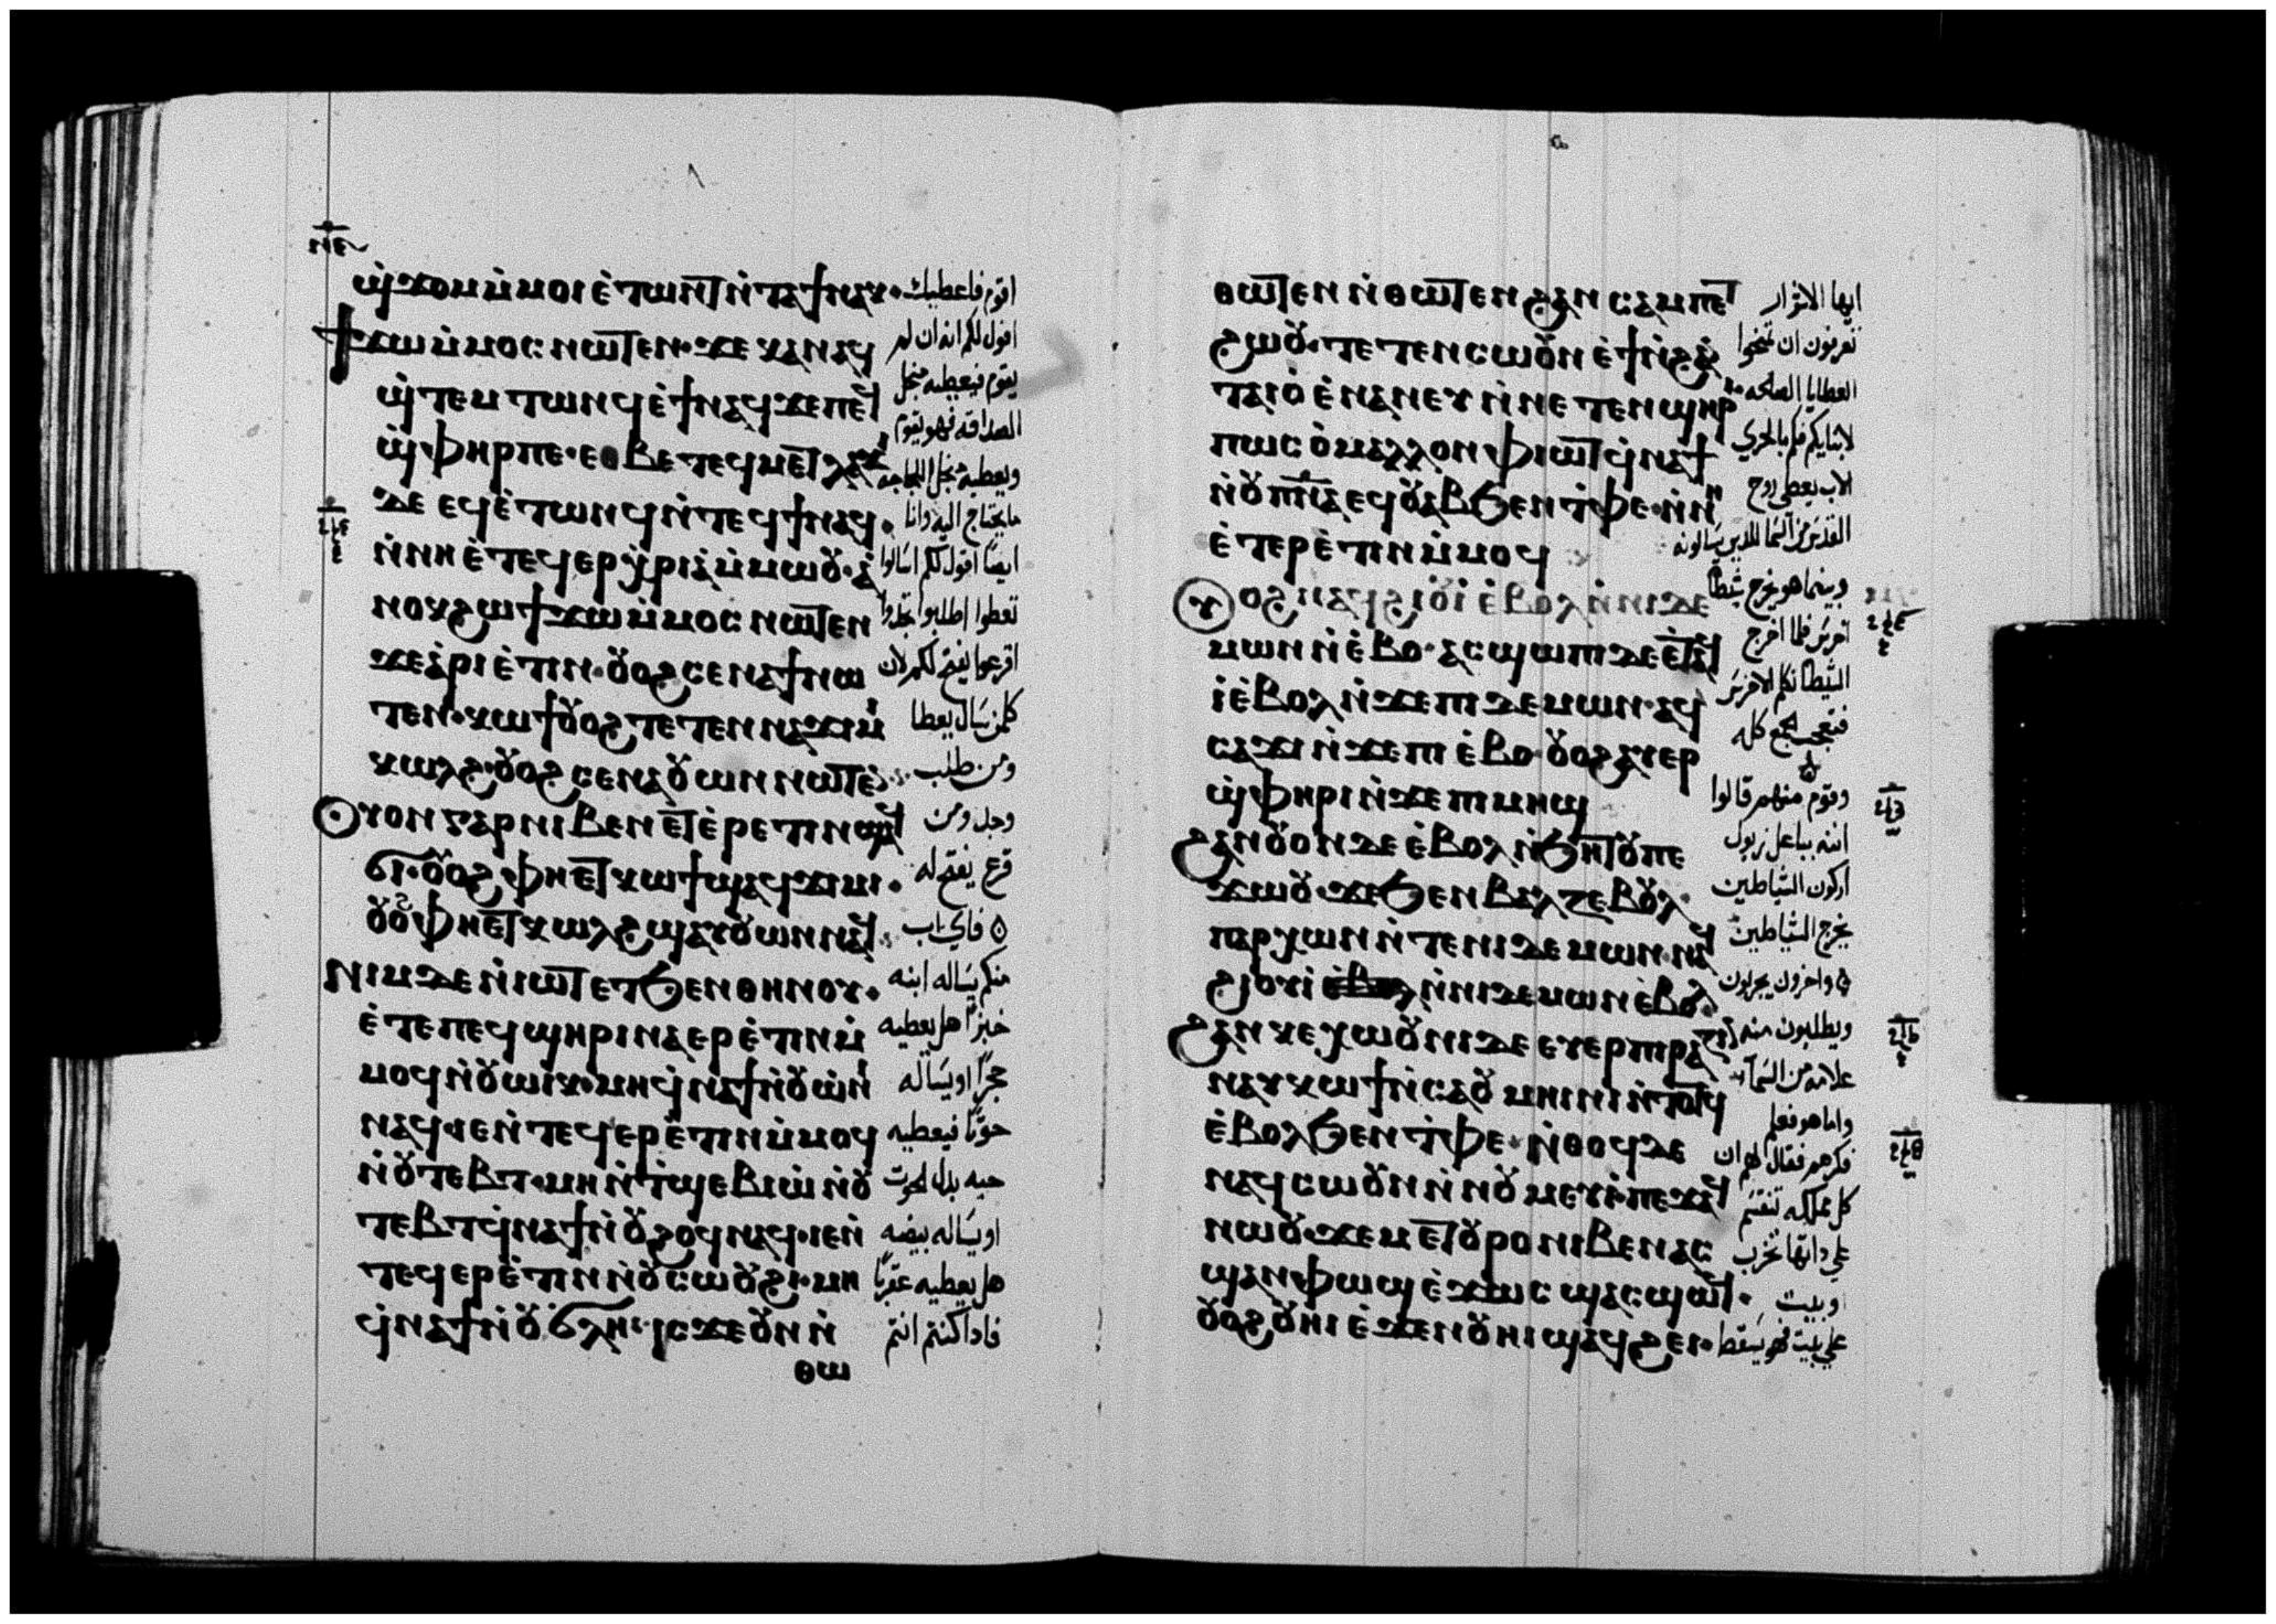 ⲛⲉ
ϣ̀ϫⲟⲙ ⲙ̀ⲙⲟⲓ ⲉ̀ⲧⲱⲛⲧ ⲛ̀ⲧⲁϯⲛⲁⲕ·
ϯϫⲱ ⲙ̀ⲙⲟⲥ ⲛⲱⲧⲉⲛ· ϫⲉ ⲕⲁⲛ ⲁϥ
ϣ̀ⲧⲉⲙ ⲧⲱⲛϥ ⲉ̀ϯⲛⲁϥ ϫⲉ ⲡⲉϥ
ϣ̀ⲫⲏⲣⲡⲉ· ⲉⲑⲃⲉ ⲧⲉϥⲙⲉⲧⲗⲁϫ
ⲇⲉ ⲉϥⲉ̀ⲧⲱⲛϥ ⲛ̀ⲧⲉϥϯⲛⲁϥ·
ⲛ̀ⲛⲏ ⲉ̀ⲧⲉϥⲉⲣⲭ̀ⲣⲓⲁ ⲙ̀ⲙⲱⲟⲩ· ⲁ̀
ⲛⲟⲕϩⲱ ϯϫⲱ ⲙ̀ⲙⲟⲥ ⲛⲱⲧⲉⲛ
ϫⲉ ⲁ̀ⲣⲓⲉ̀ⲧⲓⲛ· ⲟⲩⲟϩ ⲥⲉⲛⲁϯ ⲛⲱ
ⲧⲉⲛ· ⲕⲱϯ ⲟⲩⲟϩ ⲧⲉⲧⲉⲛⲛⲁϫⲓⲙ̀
ⲕⲱⲗϩ· ⲟⲩⲟϩ ⲥⲉⲛⲁⲟⲩⲱⲛ ⲛⲱⲧⲉ
ⲟⲩⲟⲛ ⲅⲁⲣ ⲛⲓⲃⲉⲛ ⲉⲧⲉ̀ⲣⲉⲧⲓⲛ ϣⲁϥ
ϭⲓ· ⲟⲩⲟϩ ⲫⲏⲉⲧⲕⲱϯ ϣⲁϥϫⲓⲙⲓ·
ⲟⲩⲟϩ ⲫⲏⲉⲧⲕⲱⲗϩ ϣⲁⲩⲟⲩⲱⲛ ⲛⲁϥ
ⲛⲓⲙ ⲇⲉ ⲛ̀ⲓⲱⲧ ⲉⲧϧⲉⲛ ⲑⲏⲛⲟⲩ·
ⲉ̀ⲧⲉ ⲡⲉϥϣⲏⲣⲓ ⲛⲁⲉⲣⲉ̀ⲧⲓⲛ ⲙ̀
ⲙⲟϥ ⲛ̀ⲟⲩⲱⲓⲕ· ⲙⲏ ϥ̀ⲛⲁϯ ⲛ̀ⲟⲩⲱ̀ⲛⲓ
ⲛⲁϥ· ⲓⲉ ⲛ̀ⲧⲉϥⲉⲣⲉ̀ⲧⲓⲛ ⲙ̀ⲙⲟϥ
ⲛ̀ⲟⲩⲧⲉⲃⲧ· ⲙⲏ ⲛ̀ⲧ̀ϣⲉⲃⲓⲱ̀ ⲛ̀ⲟⲩ
ⲧⲉⲃⲧ ϥ̀ⲛⲁϯ ⲛ̀ⲟⲩϩⲟϥ ⲛⲁϥ· ⲓⲉ ⲛ̀
ⲧⲉϥⲉⲣⲉ̀ⲧⲓⲛ ⲛ̀ⲟⲩⲥⲱⲟⲩϩⲓ· ⲙⲏ
ϥ̀ⲛⲁϯ ⲛ̀ⲟⲩϭⲗⲏ ⲓⲥϫⲉ ⲟⲩⲛ ⲛ̀
ⲑⲱ
اقوم فاعطيك
اقول لكم انه ان لم
يقوم فيعطيه من اجل
الصداقه فهو يقوم
ويعطيه من اجل اللجاجه
ما يحتاج اليه وانا
ايضًا اقول لكم اسالوا
تعطوا اطلبوا تجدوا
اقرعوا يفتح لكم لان
كلمن سال يعطا
ومن طلب
وجد ومن
قرع يفتح له
فاي اب
منكم يساله ابنه
خبزًا هل يعطيه
حجرًا او يساله
حوتًا فيعطيه
حيه بدل الحوت
او يساله بيضه
هل يعطيه عقربًا
فاذا كنتم انتم
ⲑⲱⲧⲉⲛ ⲛ̀ⲑⲱⲧⲉⲛ ϩⲁⲛ ⲥⲁⲙⲡⲉⲧ
ϩⲱⲟⲩ· ⲧⲉⲧⲉⲛⲥⲱⲟⲩⲛ ⲉ̀ϯ ⲛ̀ϩⲁⲛ
ⲧⲁⲓⲟ̀ ⲉ̀ⲛⲁⲛⲉⲩ ⲛ̀ⲛⲉⲧⲉⲛϣⲏⲣⲓ
ⲡⲱⲥ ⲟ̀ ⲙⲁⲗⲗⲟⲛ ⲫⲓⲱⲧ ϥ̀ⲛⲁϯ
ⲛ̀ⲟⲩⲡ̅ⲛ̅ⲁ̅ ⲉϥⲟⲩⲁⲃ ϧⲉⲛ ⲧ̀ⲫⲉ· ⲛ̀ⲛⲏ
ⲉ̀ⲧⲉⲣⲉ̀ⲧⲓⲛ ⲙ̀ⲙⲟϥ
ⲟⲩⲟϩ ⲛⲁϥϩⲓⲟⲩⲓ̀ ⲉ̀ⲃⲟⲗ ⲛ̀ⲛⲓⲇⲉ
ⲙⲱⲛ ⲛ̀ⲉ̀ⲃⲟ· ⲁⲥϣⲱⲡⲓ ⲇⲉ ⲉ̀ⲧⲁϥ
ⲓ̀ ⲉ̀ⲃⲟⲗ ⲛ̀ϫⲉ ⲡⲓⲇⲉⲙⲱⲛ· ⲁϥ
ⲥⲁϫⲓ ⲛ̀ϫⲉ ⲡⲓⲉ̀ⲃⲟ· ⲟⲩⲟϩ ⲁⲩⲉⲣ
ϣ̀ⲫⲏⲣⲓ ⲛ̀ϫⲉ ⲡⲓⲙⲏϣ
ϩⲁⲛⲟⲩⲟⲛ ⲇⲉ ⲉ̀ⲃⲟⲗ ⲛ̀ϧⲏⲧⲟⲩ ⲡⲉ
ϫⲱⲟⲩ· ϫⲉ ϧⲉⲛ ⲃⲉⲗⲍⲉⲃⲟⲩⲗ
ⲡⲁⲣⲭⲱⲛ ⲛ̀ⲧⲉ ⲛⲓⲇⲉⲙⲱⲛ· ⲁϥ
ϩⲓⲟⲩⲓ̀ ⲛ̀ⲛⲓⲇⲉⲙⲱⲛ ⲉ̀ⲃⲟⲗ
ϩⲁⲛⲕⲉⲭⲱⲟⲩⲛⲓ ⲇⲉ ⲉⲩⲉⲣⲡⲓⲣⲁ
ⲛⲁⲩⲕⲱϯ ⲛ̀ⲥⲁ ⲟⲩⲙⲏⲓⲛⲓ ⲛ̀ⲧⲟⲧϥ
ⲉ̀ⲃⲟⲗ ϧⲉⲛ ⲧ̀ⲫⲉ· ⲛ̀ⲑⲟϥ ⲇⲉ
ⲛⲁϥⲥⲱⲟⲩⲛ ⲛ̀ⲛⲟⲩⲙⲉⲩⲓ· ⲡⲉϫⲁϥ
ⲛⲱⲟⲩ· ϫⲉ ⲙⲉⲧⲟⲩⲣⲟ ⲛⲓⲃⲉⲛ ⲁⲥ
ϣⲁⲛⲫⲱϣ ⲉ̀ϫⲱⲥ ϣⲁⲥϣⲱϥ·
ⲟⲩⲟϩ ⲟⲩⲏⲓ ⲉ̀ϫⲉⲛ ⲟⲩⲏⲓ ϣⲁϥϩⲉⲓ·
ايها الاشرار
تعرفون ان تمنحوا
العطايا الصالحه
لابنايكم فكم بالحري
الاب يعطى روح
القدس من السما للذين يسالونه
وبينما هو يخرج شيطانًا
اخرس فلما اخرج
الشيطان تكلم الاخرس
فتعجب الجمع كله
وقوم منهم قالوا
انه بباعل زبول
اركون الشياطين
يخرج الشياطين
واخرون يجربون
ويطلبون منه
علامه من السمآء
واما هو فعلم
فكرهم فقال لهم ان
كل مملكه تنقسم
علي ذاتها تخرب
وبيت
علي بيت فهو يسقط